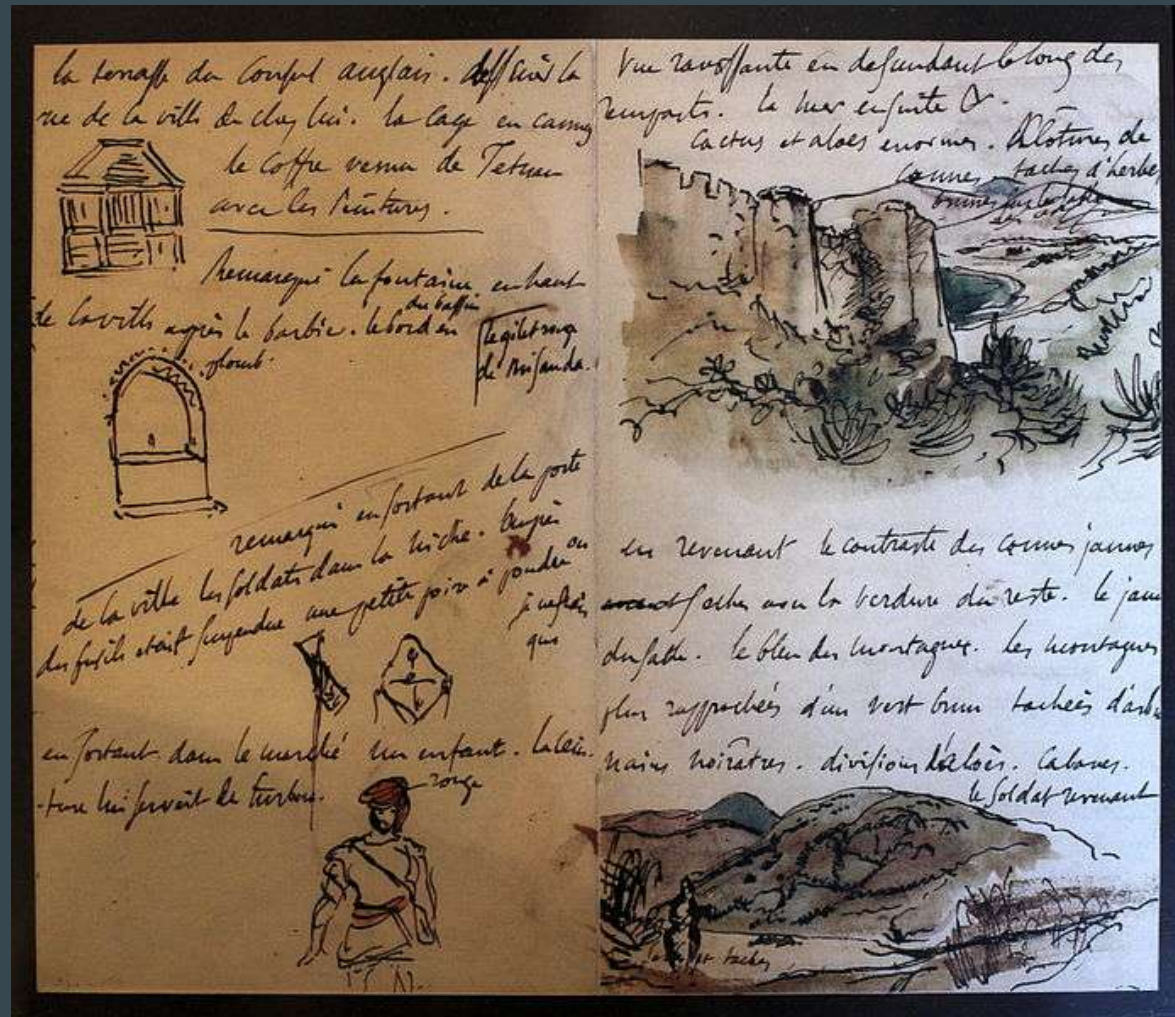 la terrasse du Consul anglais. dessiné la
vue de la ville de chez lui. la cage en cannes
le coffre venu de Tetuan
avec les peintures.
Remarqué la fontaine en haut
de la ville après le barbier. le bord du bassin en
plomb.
le gilet rouge
de
remarqué en sortant de la porte
de la ville les soldats dans la niche. auprès
des fusils etait suspendue une petite poire à poudre ou
je ne sais
quoi
en sortant dans le marché un enfant. la cein-
-ture lui servait de turban.
rouge
Vue ravissante en descendant le long des
remparts. la mer ensuite &.
cactus et aloès enormes. Clotures de
cannes. taches d'herbes
brunes sur le sable
en revenant le contraste des cannes jaunes
seches avec la verdure du reste. le jaune
du sable. le bleu des montagnes. les montagnes
plus rapprochées d'un vert brun tachées d'arbres
nains noirâtres. divisions d'aloès. Cabanes.
le soldat revenant
taches